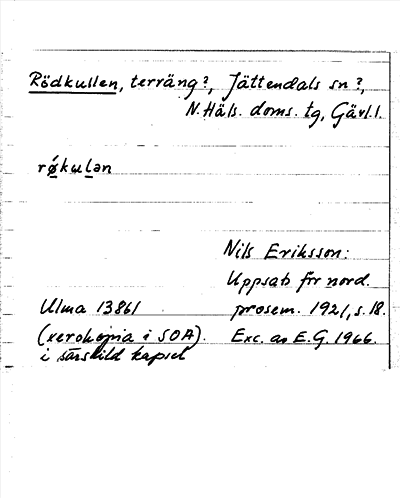 Rödkullen, terräng?, Jättendals sn?,
N. Häls. doms. tg, Gävl. l.
rǿkulən
Nils Eriksson:
Uppsats för nord.
Ulma 13861 prosem. 1921, s. 18.
(xerokopia i SOA). Exc. av E.G. 1966.
i särskild kapsel